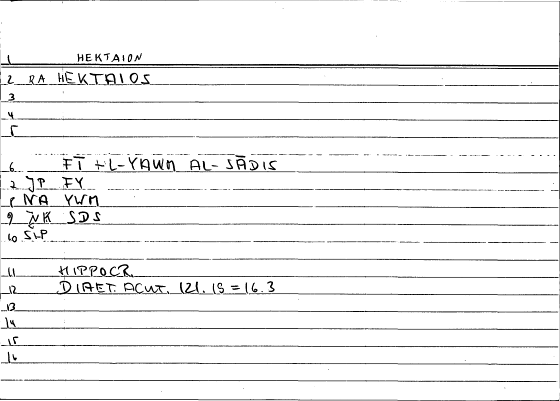 1 HEKTAION
2 RA HEKTAIOS
3
4
5
6 FĪ +L-YAWM AL-SĀDIS
7 JP FY
8 NA YWM
9 NK SDS
10 SLP
11 HIPPOCR.
12 DIAET. ACUT. 121.15 = 16.3
13
14
15
16